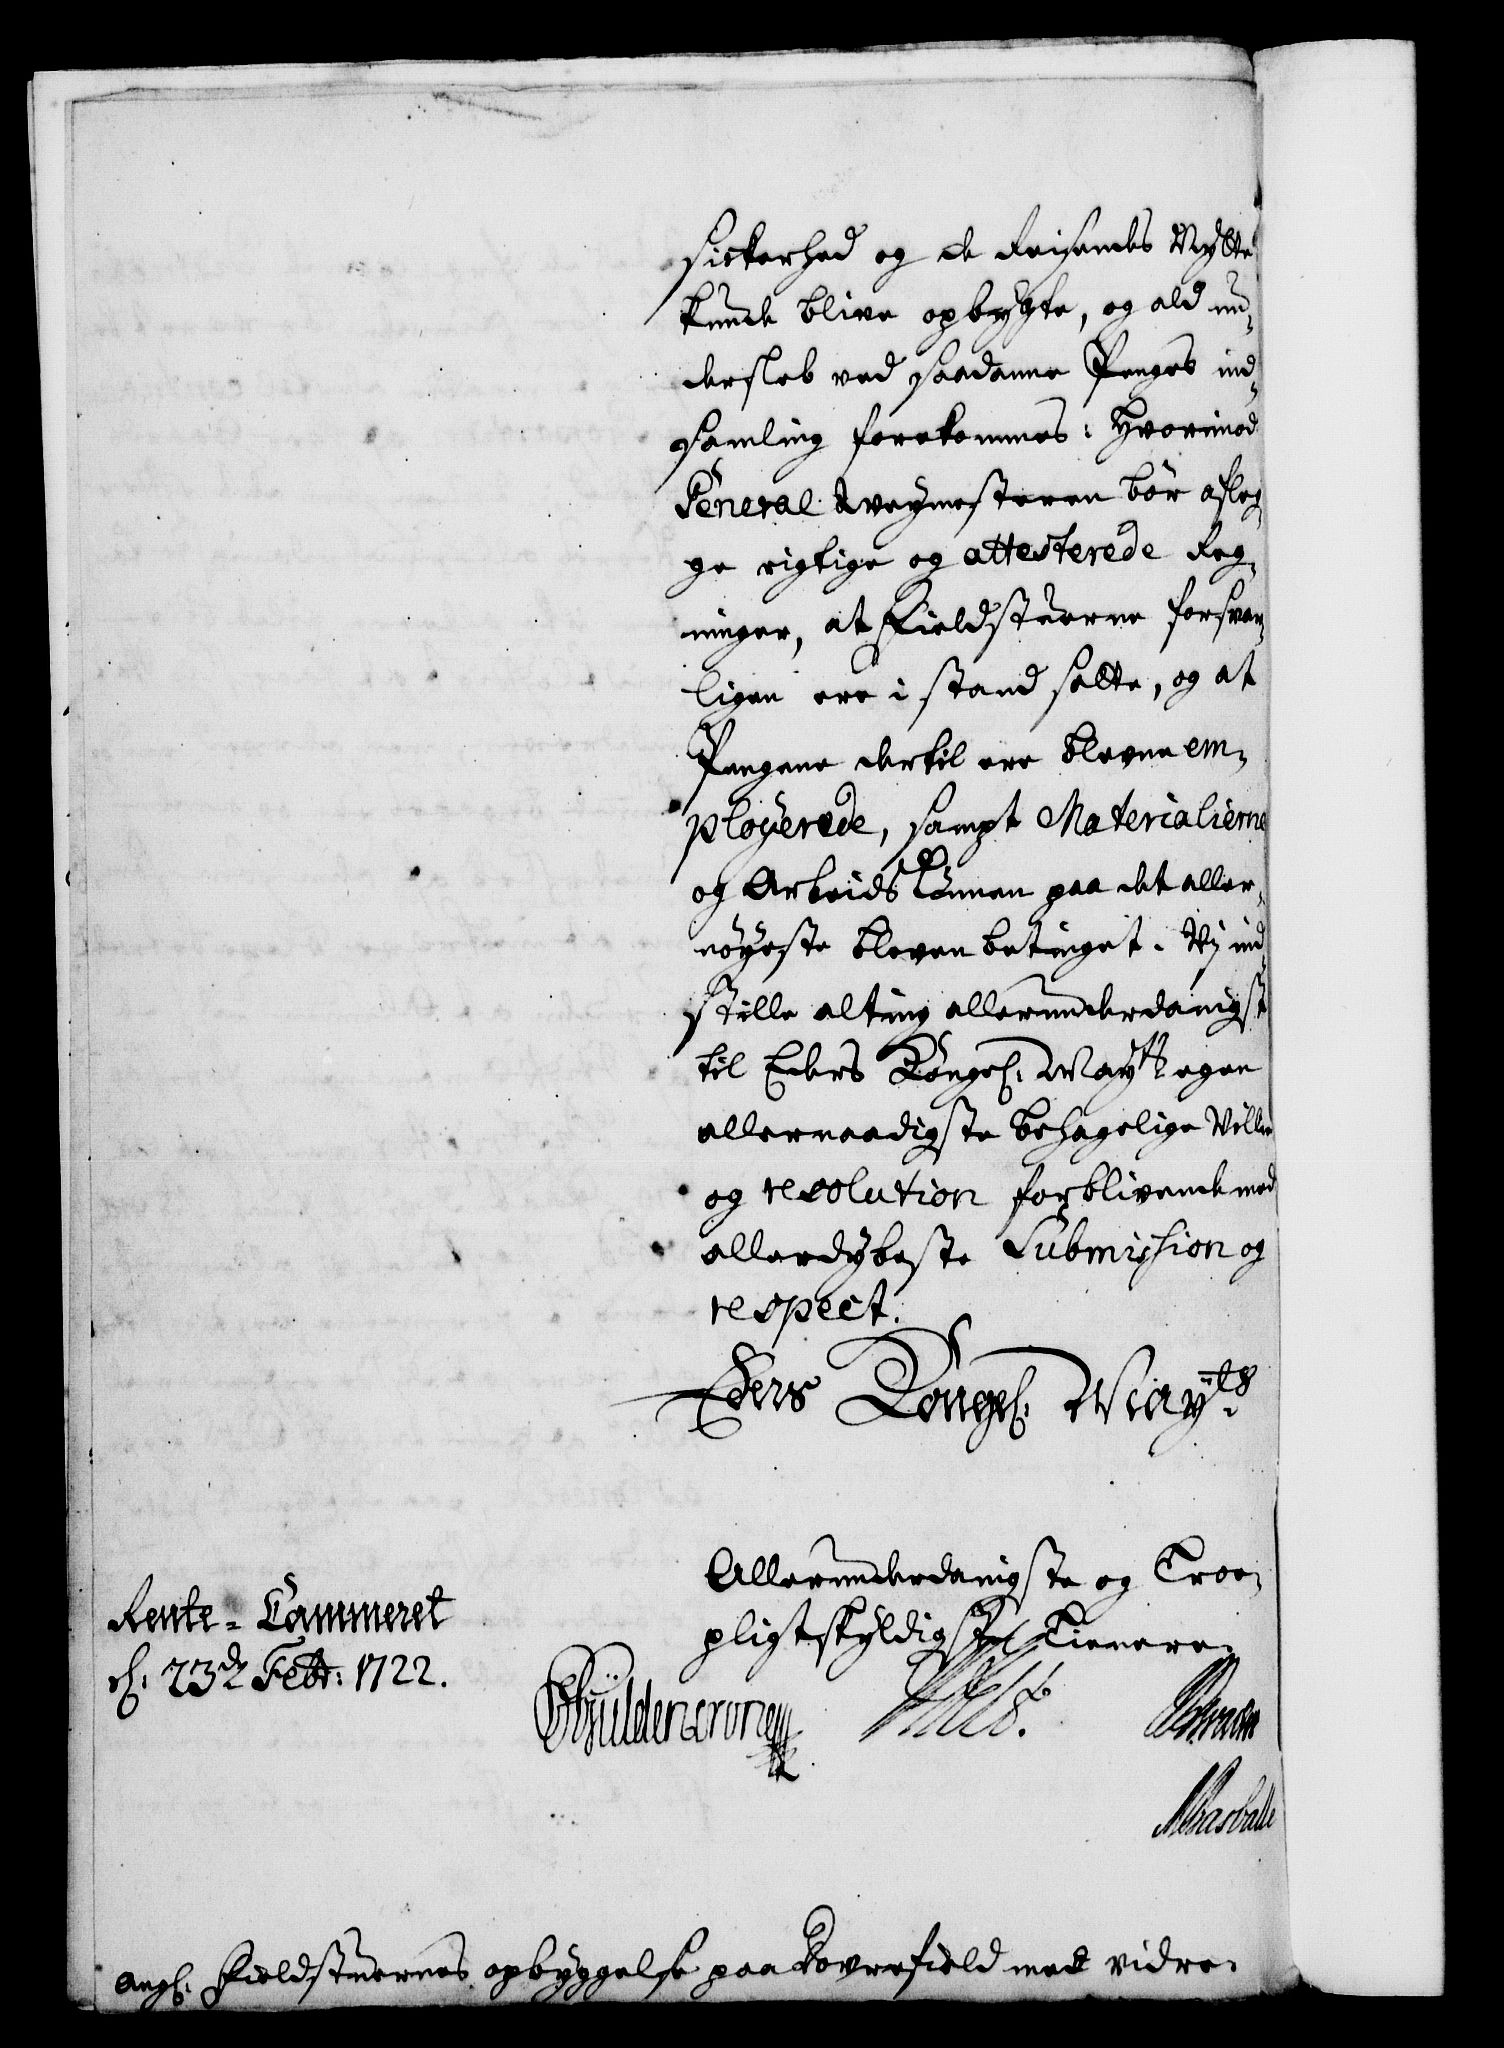 Sickerhed og de Reisendes Nytte
kunde blive opbygte, og ald un-
dersleb ved saadanne Penges ind-
samling forekommes: Hvorimod
General veymesteren bör afleg-
ge rigtige og attesterede Reg-
ninger, at Fieldstuerne forsvar-
ligen ere i stand satte, og at
Pengene dertil ere blevne em-
ployerede, sampt Materialierne
og Arbeids Lönnen paa det aller-
nöyeste bleven betinget. Vj ind-
stille alting allerunderdanigst
til Eders Kongel: May.ts egen
allernaadigste behagelige Villie
og resolution forblivende med
allerdybeste Submission og
respect.
Eders Kongel: May.ts
Allerunderdanigste og Troe-
pligtskyldigste Tienere.
Rente-Cammeret
d: 23de Febr: 1722.
Gyldencrone
angl: Fieldstuernes opbyggelse paa Dovrefield med vidre.